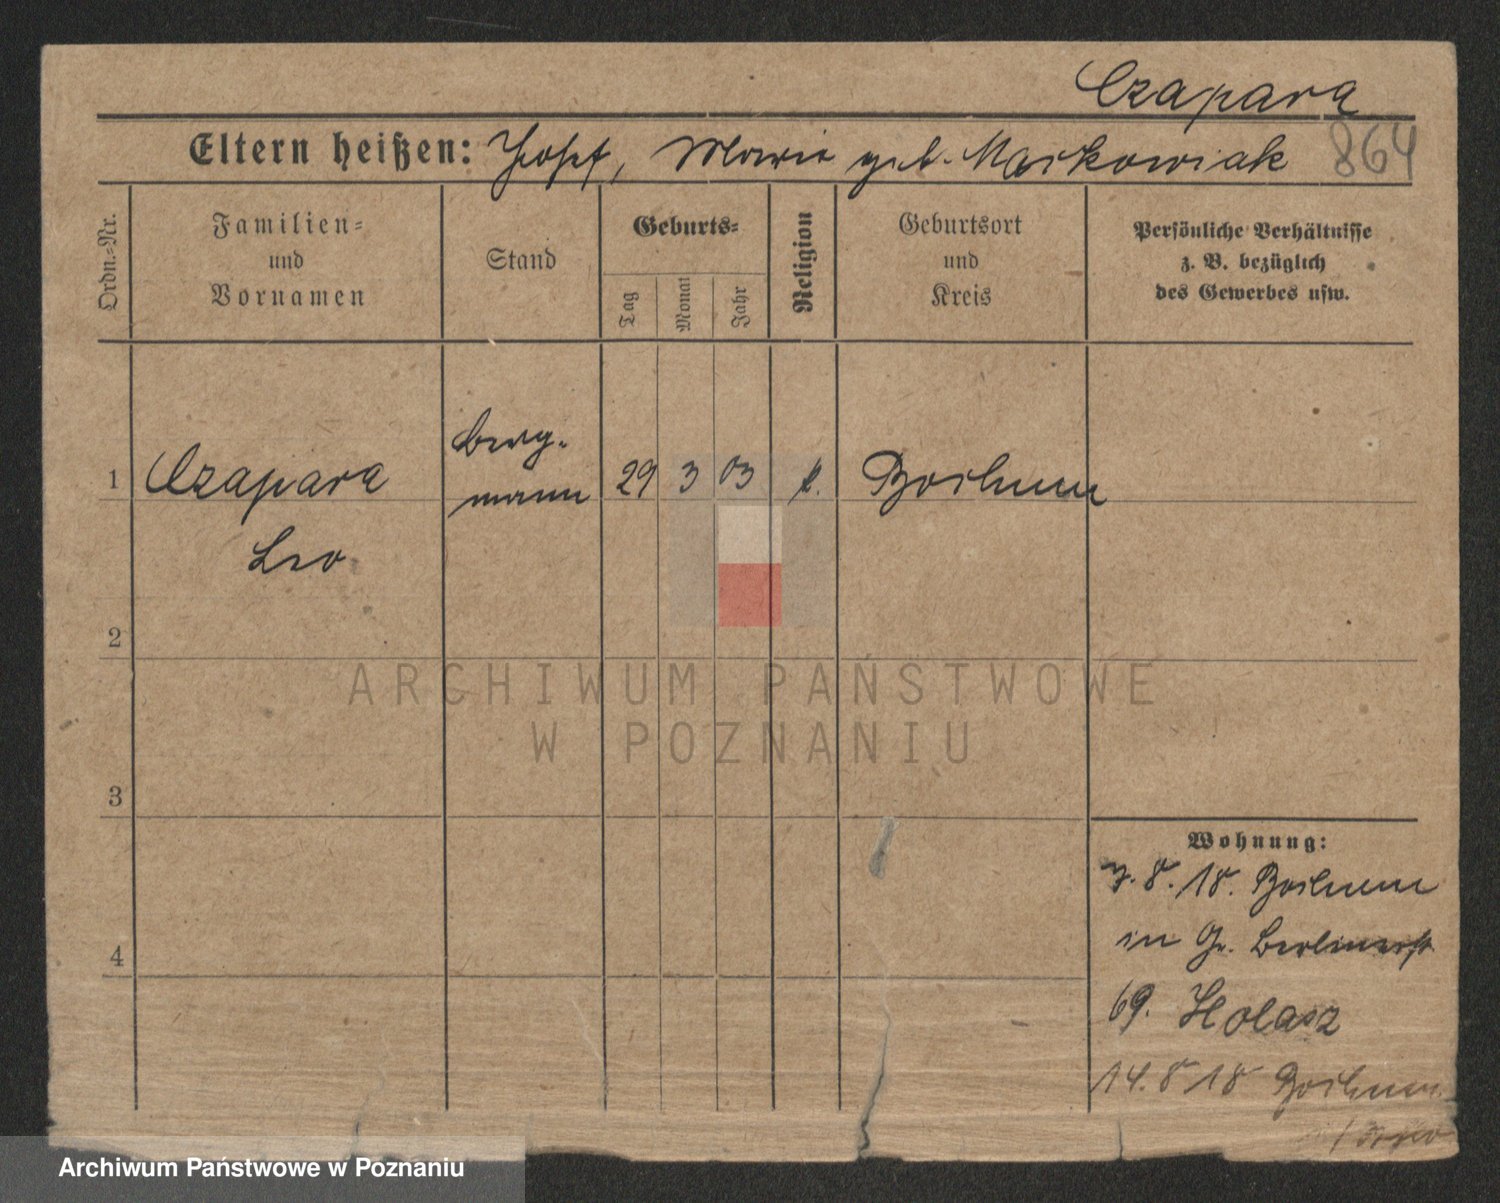 Czapara
Eltern heißen: Josef, Maria geb. Markowiak
864
Ordn.-Nr.
Familien-
und
Vornamen
Stand
Geburts-
Tag
Monat
Jahr
Religion
Geburtsort
und
Kreis
Persönliche Verhältnisse
z. B. bezüglich
des Gewerbes usw.
1 Czapara Leo
Berg-
mann
29 3 03 k. Bochum
2
3
4
Wohnung:
8. 18. Bochum
in Gr. Berlinerstr
69. Holasz
14. 8 18 Bochum
ARCHIWUM PAŃSTWOWE
W POZNANIU
Archiwum Państwowe w Poznaniu